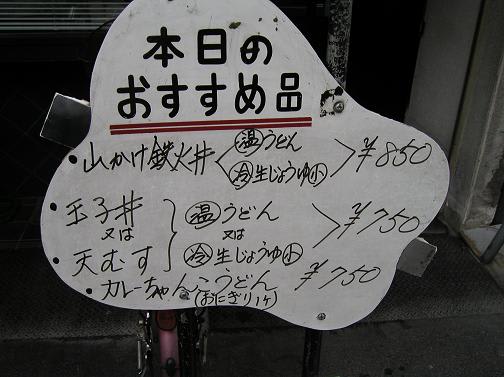 本日の
おすすめ品
・山かけ鉄火丼 < ㊤温うどん 冷生じょうゆ小 > ¥850
・玉子丼 又は 天むす } 温うどん 又は 冷生じょうゆ小 > ¥750
・カレーちゃんこうどん ¥750
(おにぎり1ヶ)